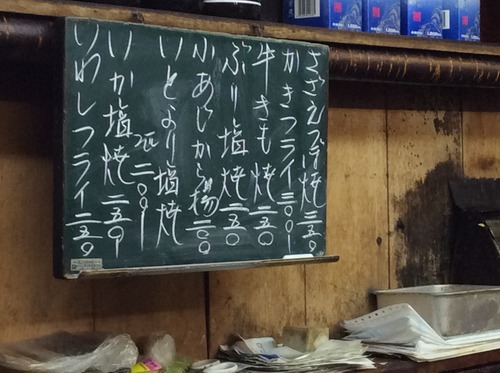 さざえつぼ焼三五〇
かきフライ三〇〇
牛きも焼二五〇
ぶり塩焼二五〇
小あじから揚二〇〇
いとより塩焼
二〇〇
いか塩焼二五〇
いわしフライ二五〇